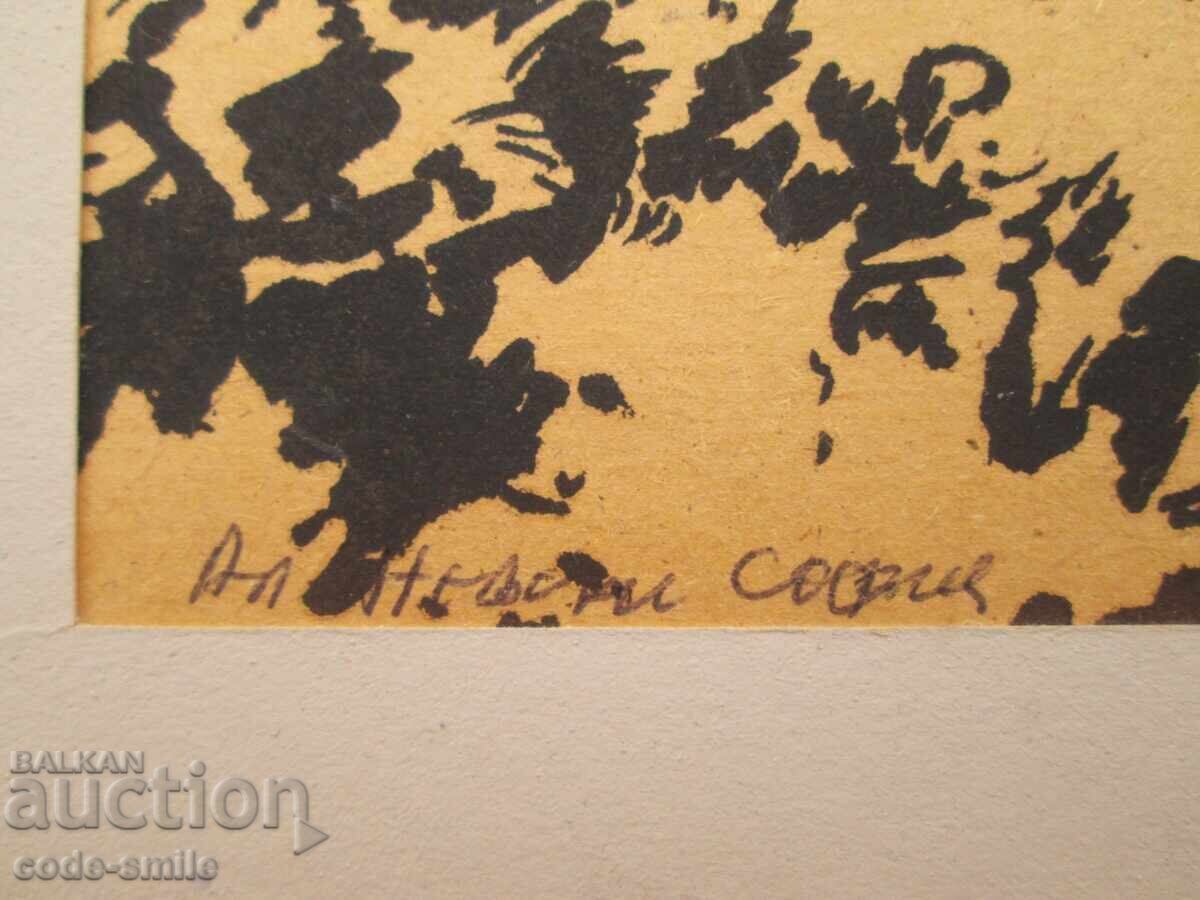 Ал Невски София
BALKAN
auction
code-smile